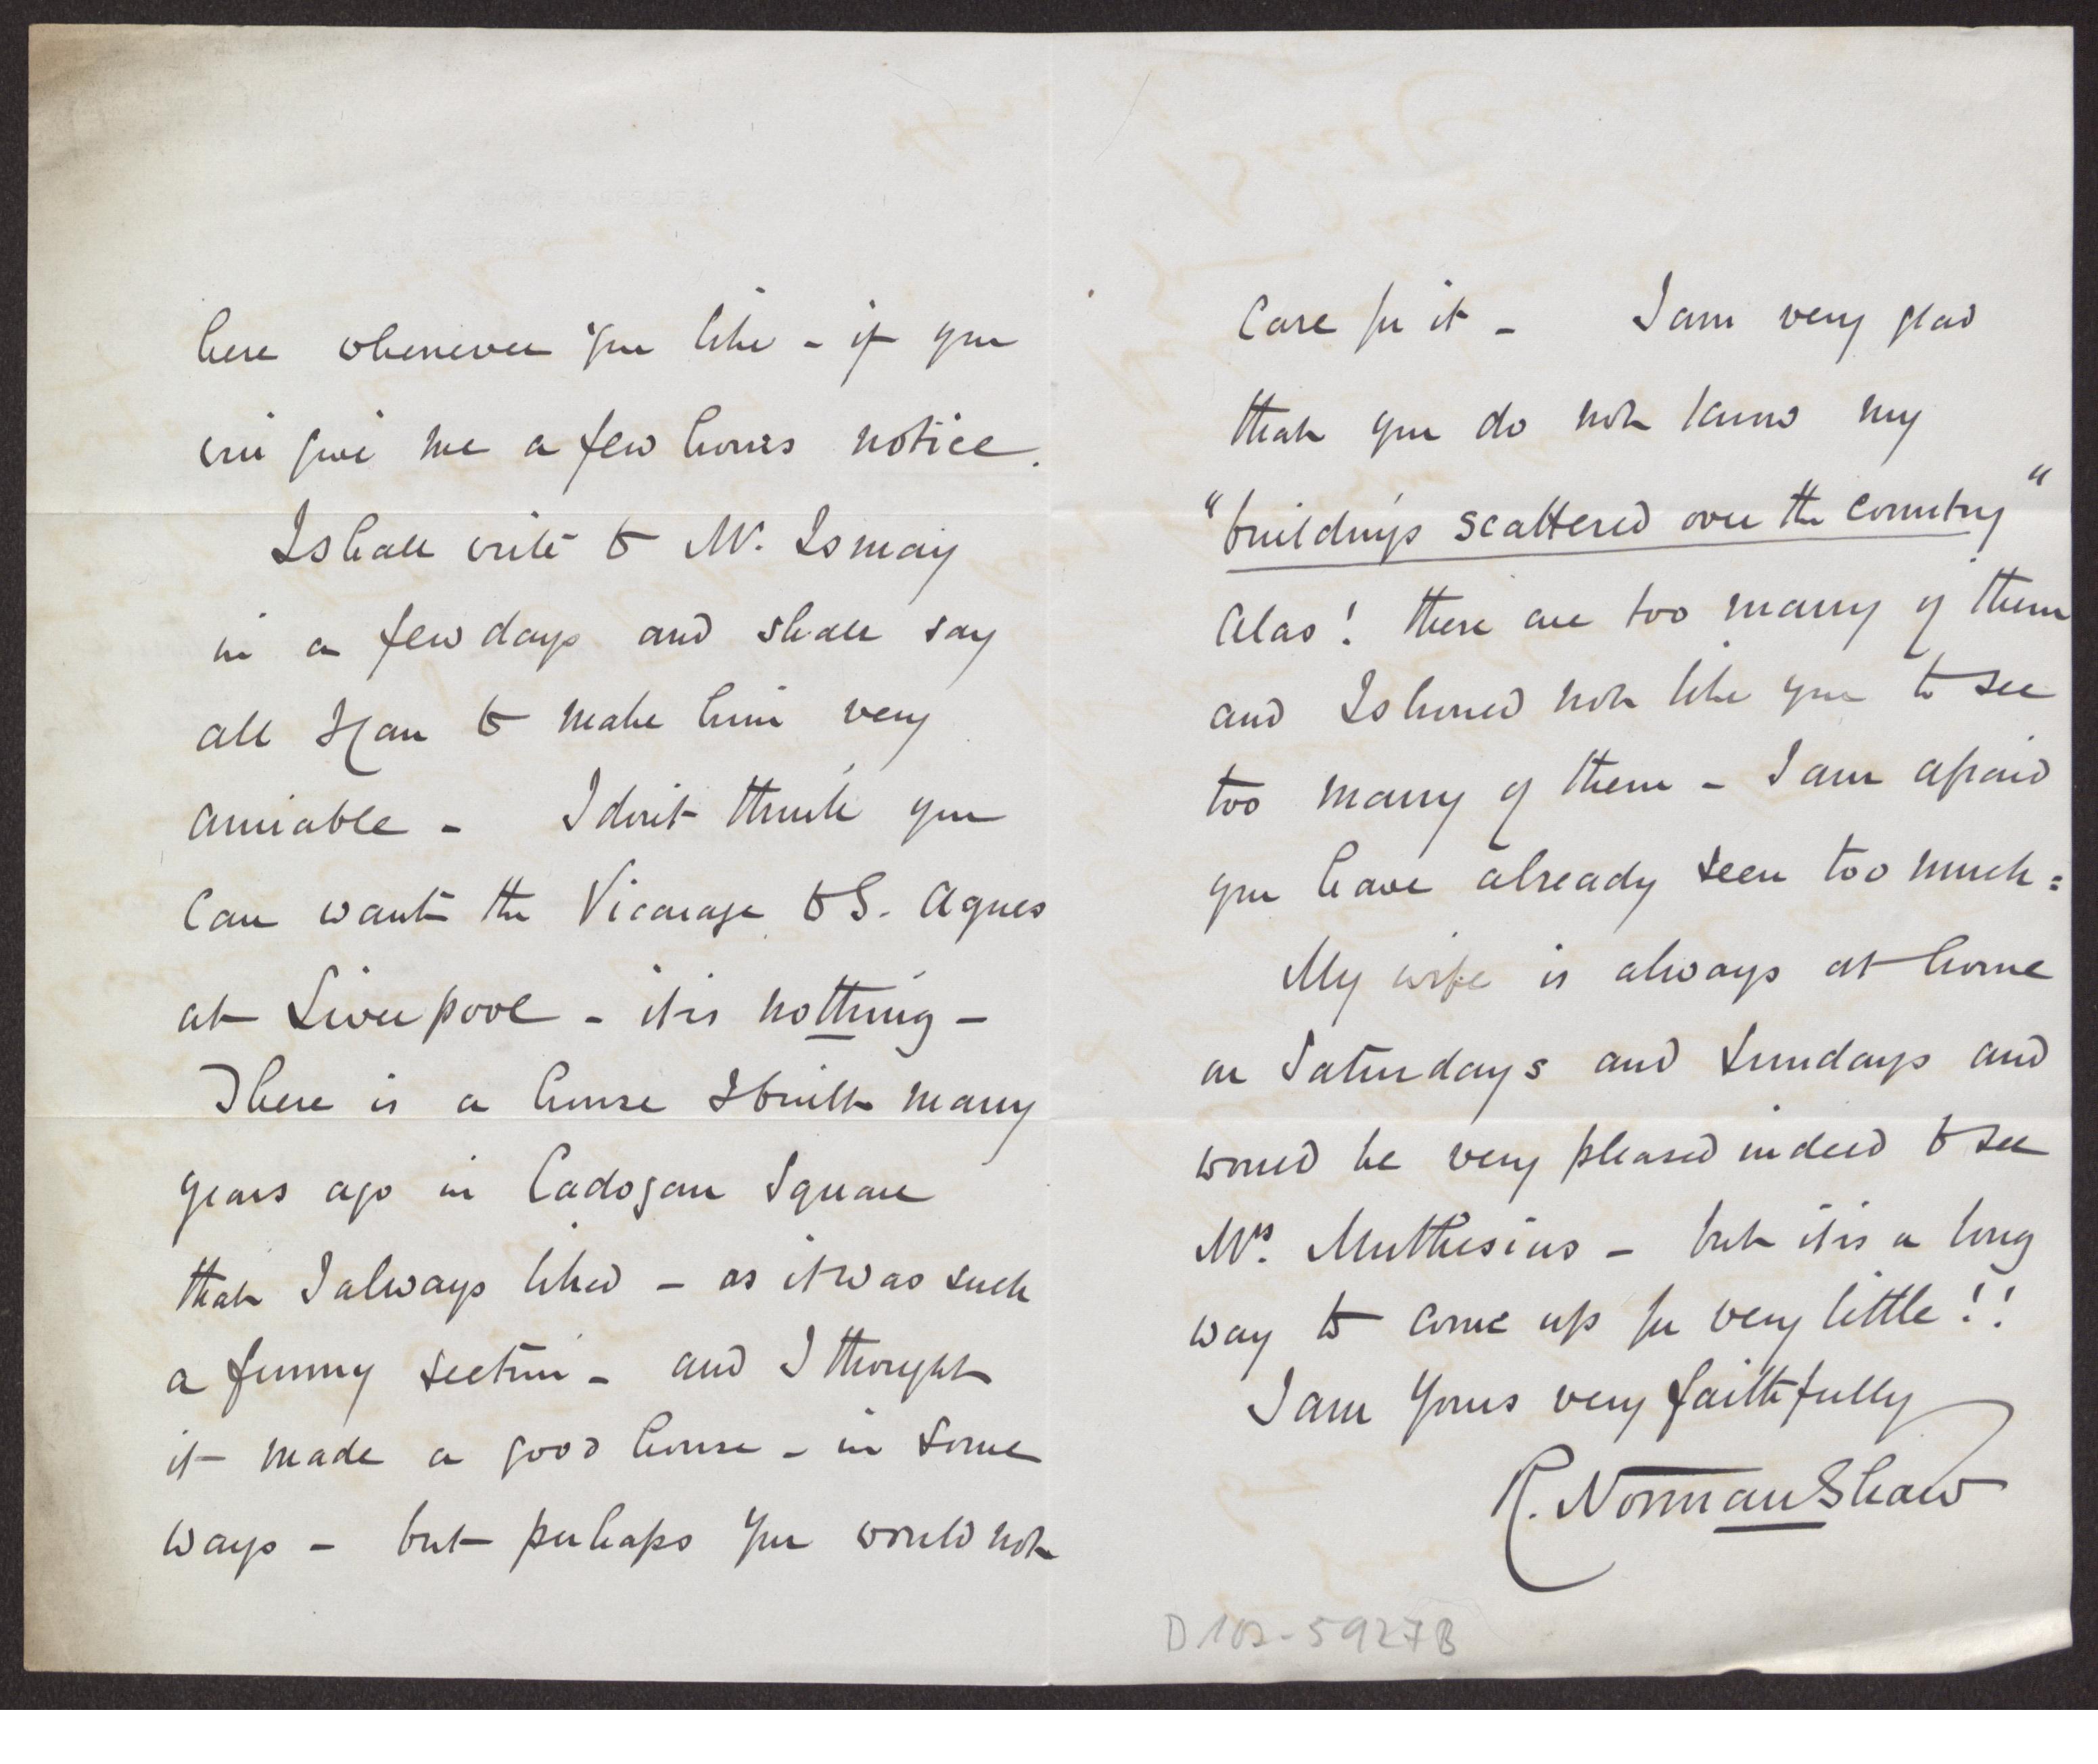 here whenever you like - if you
will give me a few hours notice.
I shall write to Mr. Ismay
in a few days and shall say
all I can to make him very
amiable - I don't think you
can want the Vicarage to S. Agnes
at Liverpool - it is nothing -
There is a house I built many
years ago in Cadogan Square
that I always liked - as it was such
a funny section - and I thought
it made a good house - in some
ways - but perhaps you would not
care for it - I am very glad
that you do not know my
"buildings scattered over the country"
Alas! there are too many of them
and I should not like you to see
too many of them - I am afraid
you have already seen too much:
My wife is always at home
on Saturdays and Sundays and
would be very pleased indeed to see
Mrs. Muthesius - but it is a long
way to come up for very little!!
I am Yours very faithfully
R. Norman Shaw
D 102-5927B